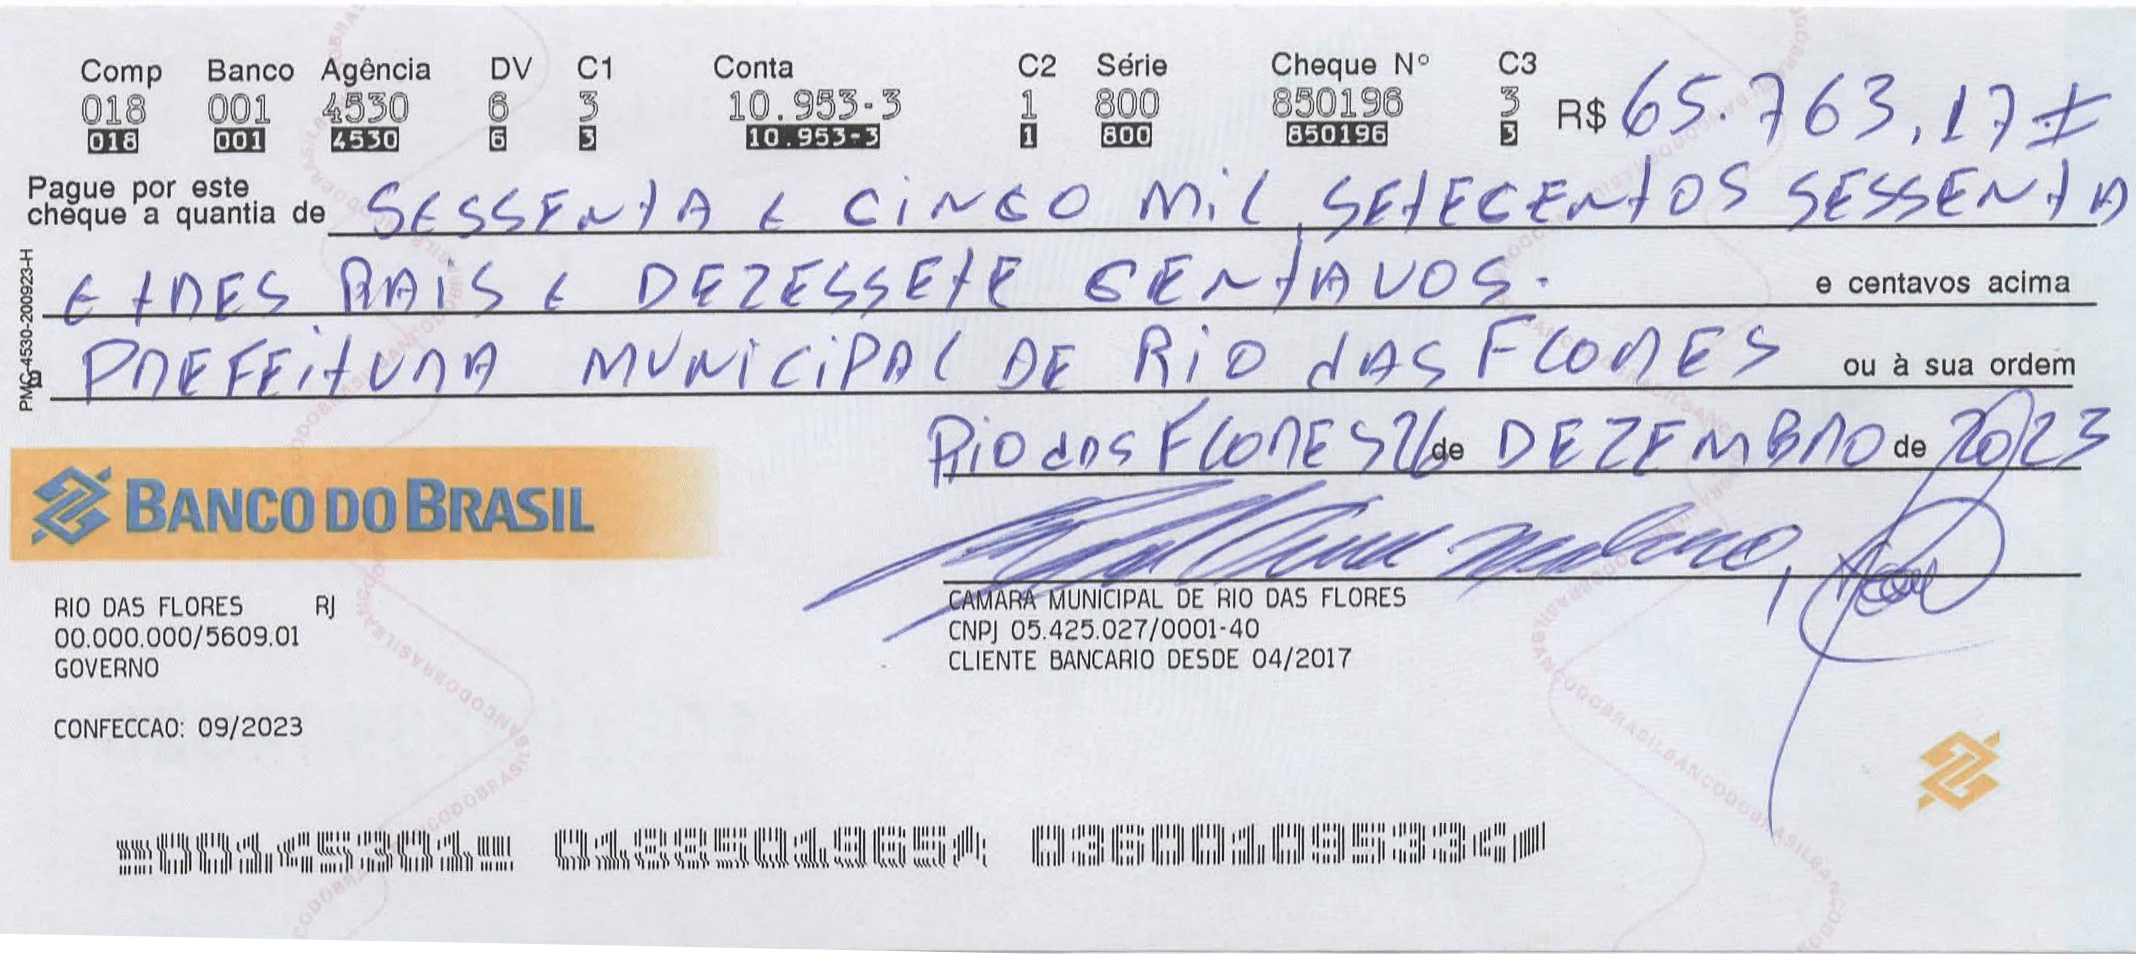 Comp Banco Agência DV C1 Conta C2 Série Cheque Nº C3
018 001 4530 6 3 10.953-3 1 800 850196 3 R$ 65.763,17
018 001 4530 6 3 10.953-3 1 800 850196 3
Pague por este
cheque a quantia de SESSENTA E CINCO MIL, SETECENTOS SESSENTA
E TRES RAIS E DEZESSETE CENTAVOS. e centavos acima
PREFEITURA MUNICIPAL DE RIO dAS FLORES ou à sua ordem
PMG-4530-2009223-H
RIO das FLORES 26 de DEZEMBRO de 2023
BANCO DO BRASIL
RIO DAS FLORES RJ
00.000.000/5609.01
GOVERNO
CONFECCAO: 09/2023
CAMARA MUNICIPAL DE RIO DAS FLORES
CNPJ 05.425.027/0001-40
CLIENTE BANCARIO DESDE 04/2017
00145301 0188501965 036001095334